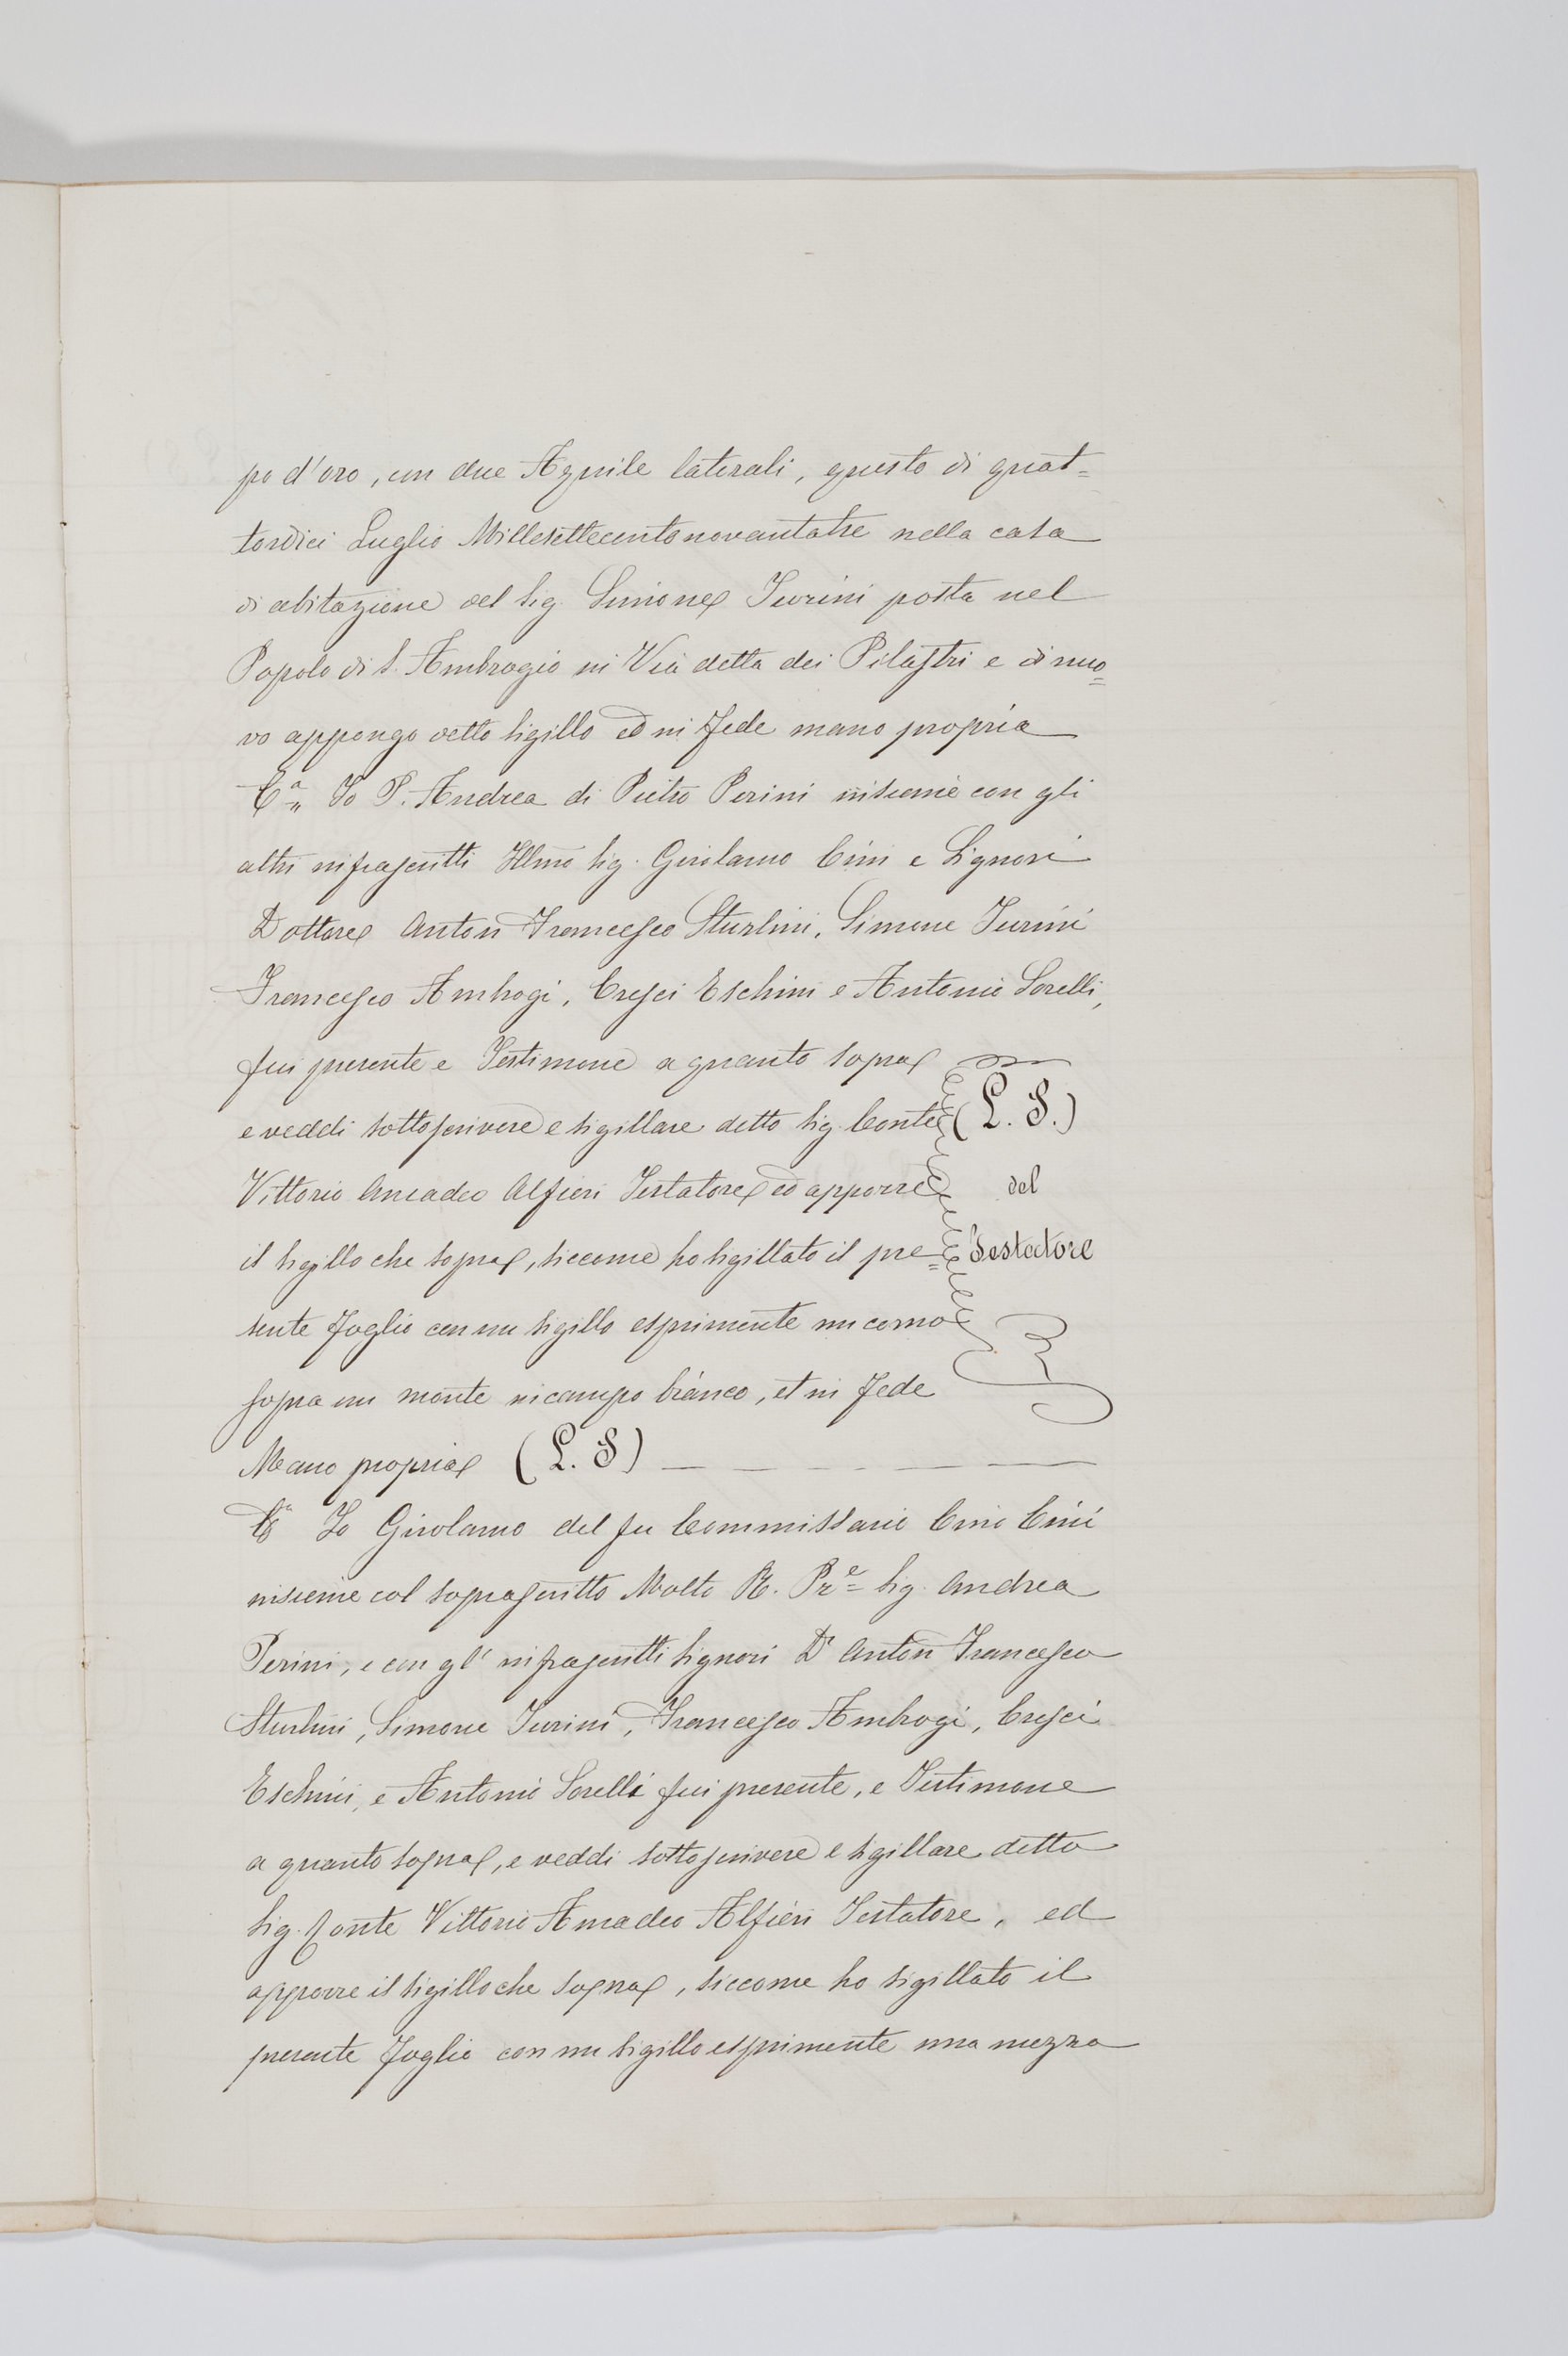 po d'oro, con due Aquile laterali, questo di quat=
tordici Luglio Millesettecentonovantatre nella casa
di abitazione del Sig. Simone Turini posta nel
Popolo di S. Ambrogio in Via detta dei Pilastri e di nuo=
vo appongo detto Sigillo ed in Fede mano propria
Io P. Andrea di Pietro Perini insieme con gli
altri infrascritti Illmo Sig. Girolamo Cini e Signori
Dottore Anton Francesco Sturlini, Simone Turini
Francesco Ambrogi, Cresci Eschini e Antonio Sorelli,
fui presente e Testimone a quanto sopra
e veddi sottoscrivere e sigillare detto Sig. Conte
Vittorio Amadeo Alfieri Testatore ed apporre
il sigillo che sopra, siccome ho sigillato il pre=
sente Foglio con un sigillo esprimente un corno
sopra un monte in campo bianco, et in Fede
Mano propria (L. S)
(L. S.)
del
Testatore
Io Girolamo del fu Commissario Cino Cini
insieme col soprascritto Molto R. Pre= Sig. Andrea
Perini, e con gl' infrascritti Signori Dr Anton Francesco
Sturlini, Simone Turini, Francesco Ambrogi, Cresci
Eschini, e Antonio Sorelli fui presente, e Testimone
a quanto sopra, e veddi sottoscrivere e sigillare detto
Sig. Conte Vittorio Amadeo Alfieri Testatore, ed
apporre il sigillo che sopra, siccome ho sigillato il
presente Foglio con un sigillo esprimente una mezza